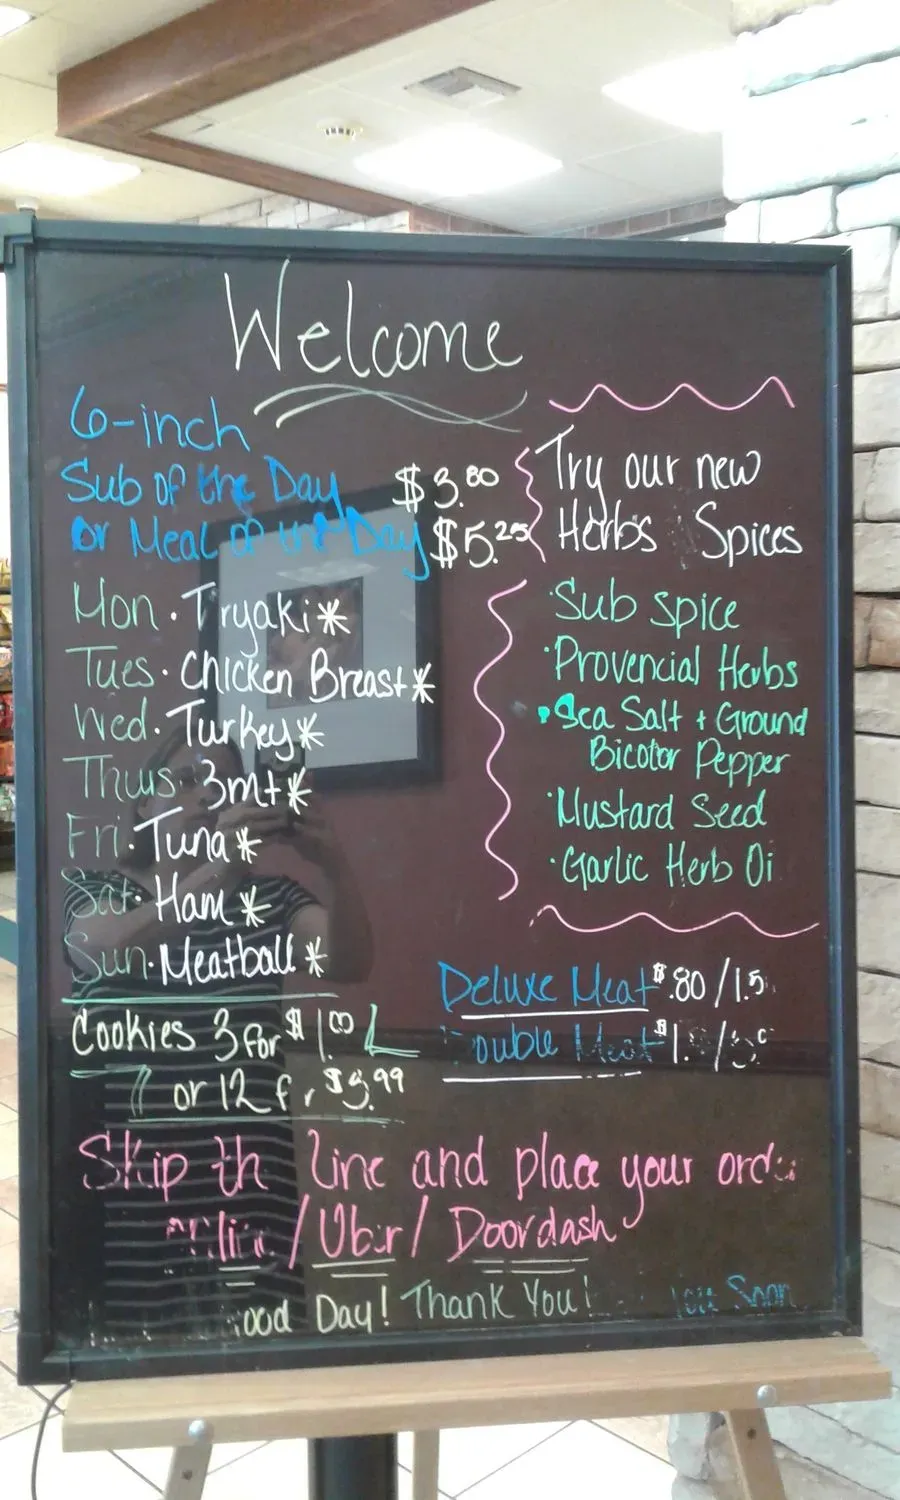 Welcome
6-inch
Sub of the Day $3.80
or Meal of the Day $5.25
Mon. Tryaki*
Tues. Chicken Breast*
Wed. Turkey*
Thurs. 3mt*
Fri. Tuna*
Sat. Ham*
Sun. Meatball*
Cookies 3 for $1.00
or 12 f r $3.99
Try our new
Herbs Spices
·Sub spice
·Provencial Herbs
·Sea Salt + Ground
Bicotor Pepper
·Mustard Seed
·Garlic Herb Oi
Deluxe Meat $.80/1.5
ouble Meat $1.
Skip th line and place your orde
/Uber/Doordash
ood Day! Thank You! Soon